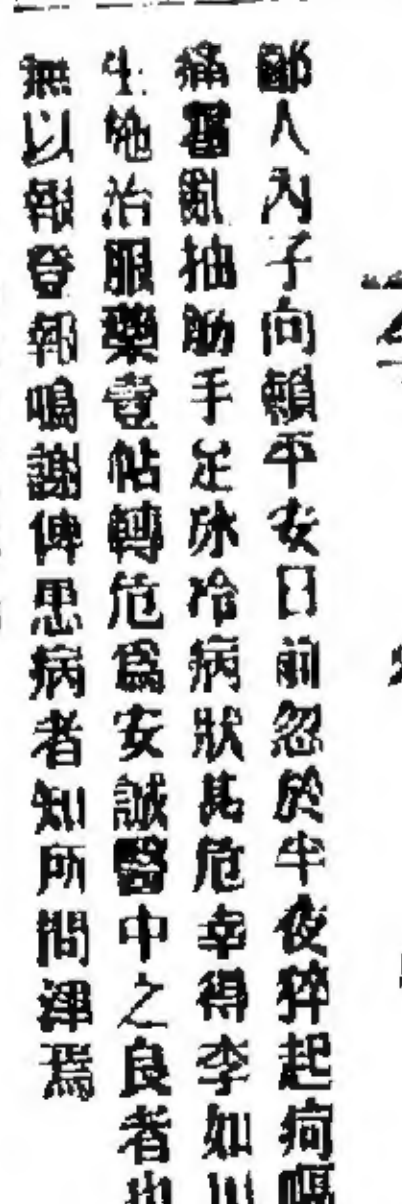 鄙人內子向賴平安日前忽於半夜猝起痾嘔
痛霍亂抽筋手足冰冷病狀甚危幸得李如川
生施治服藥壹帖轉危爲安誠醫中之良者也
無以報登報鳴謝俾患病者知所問津焉